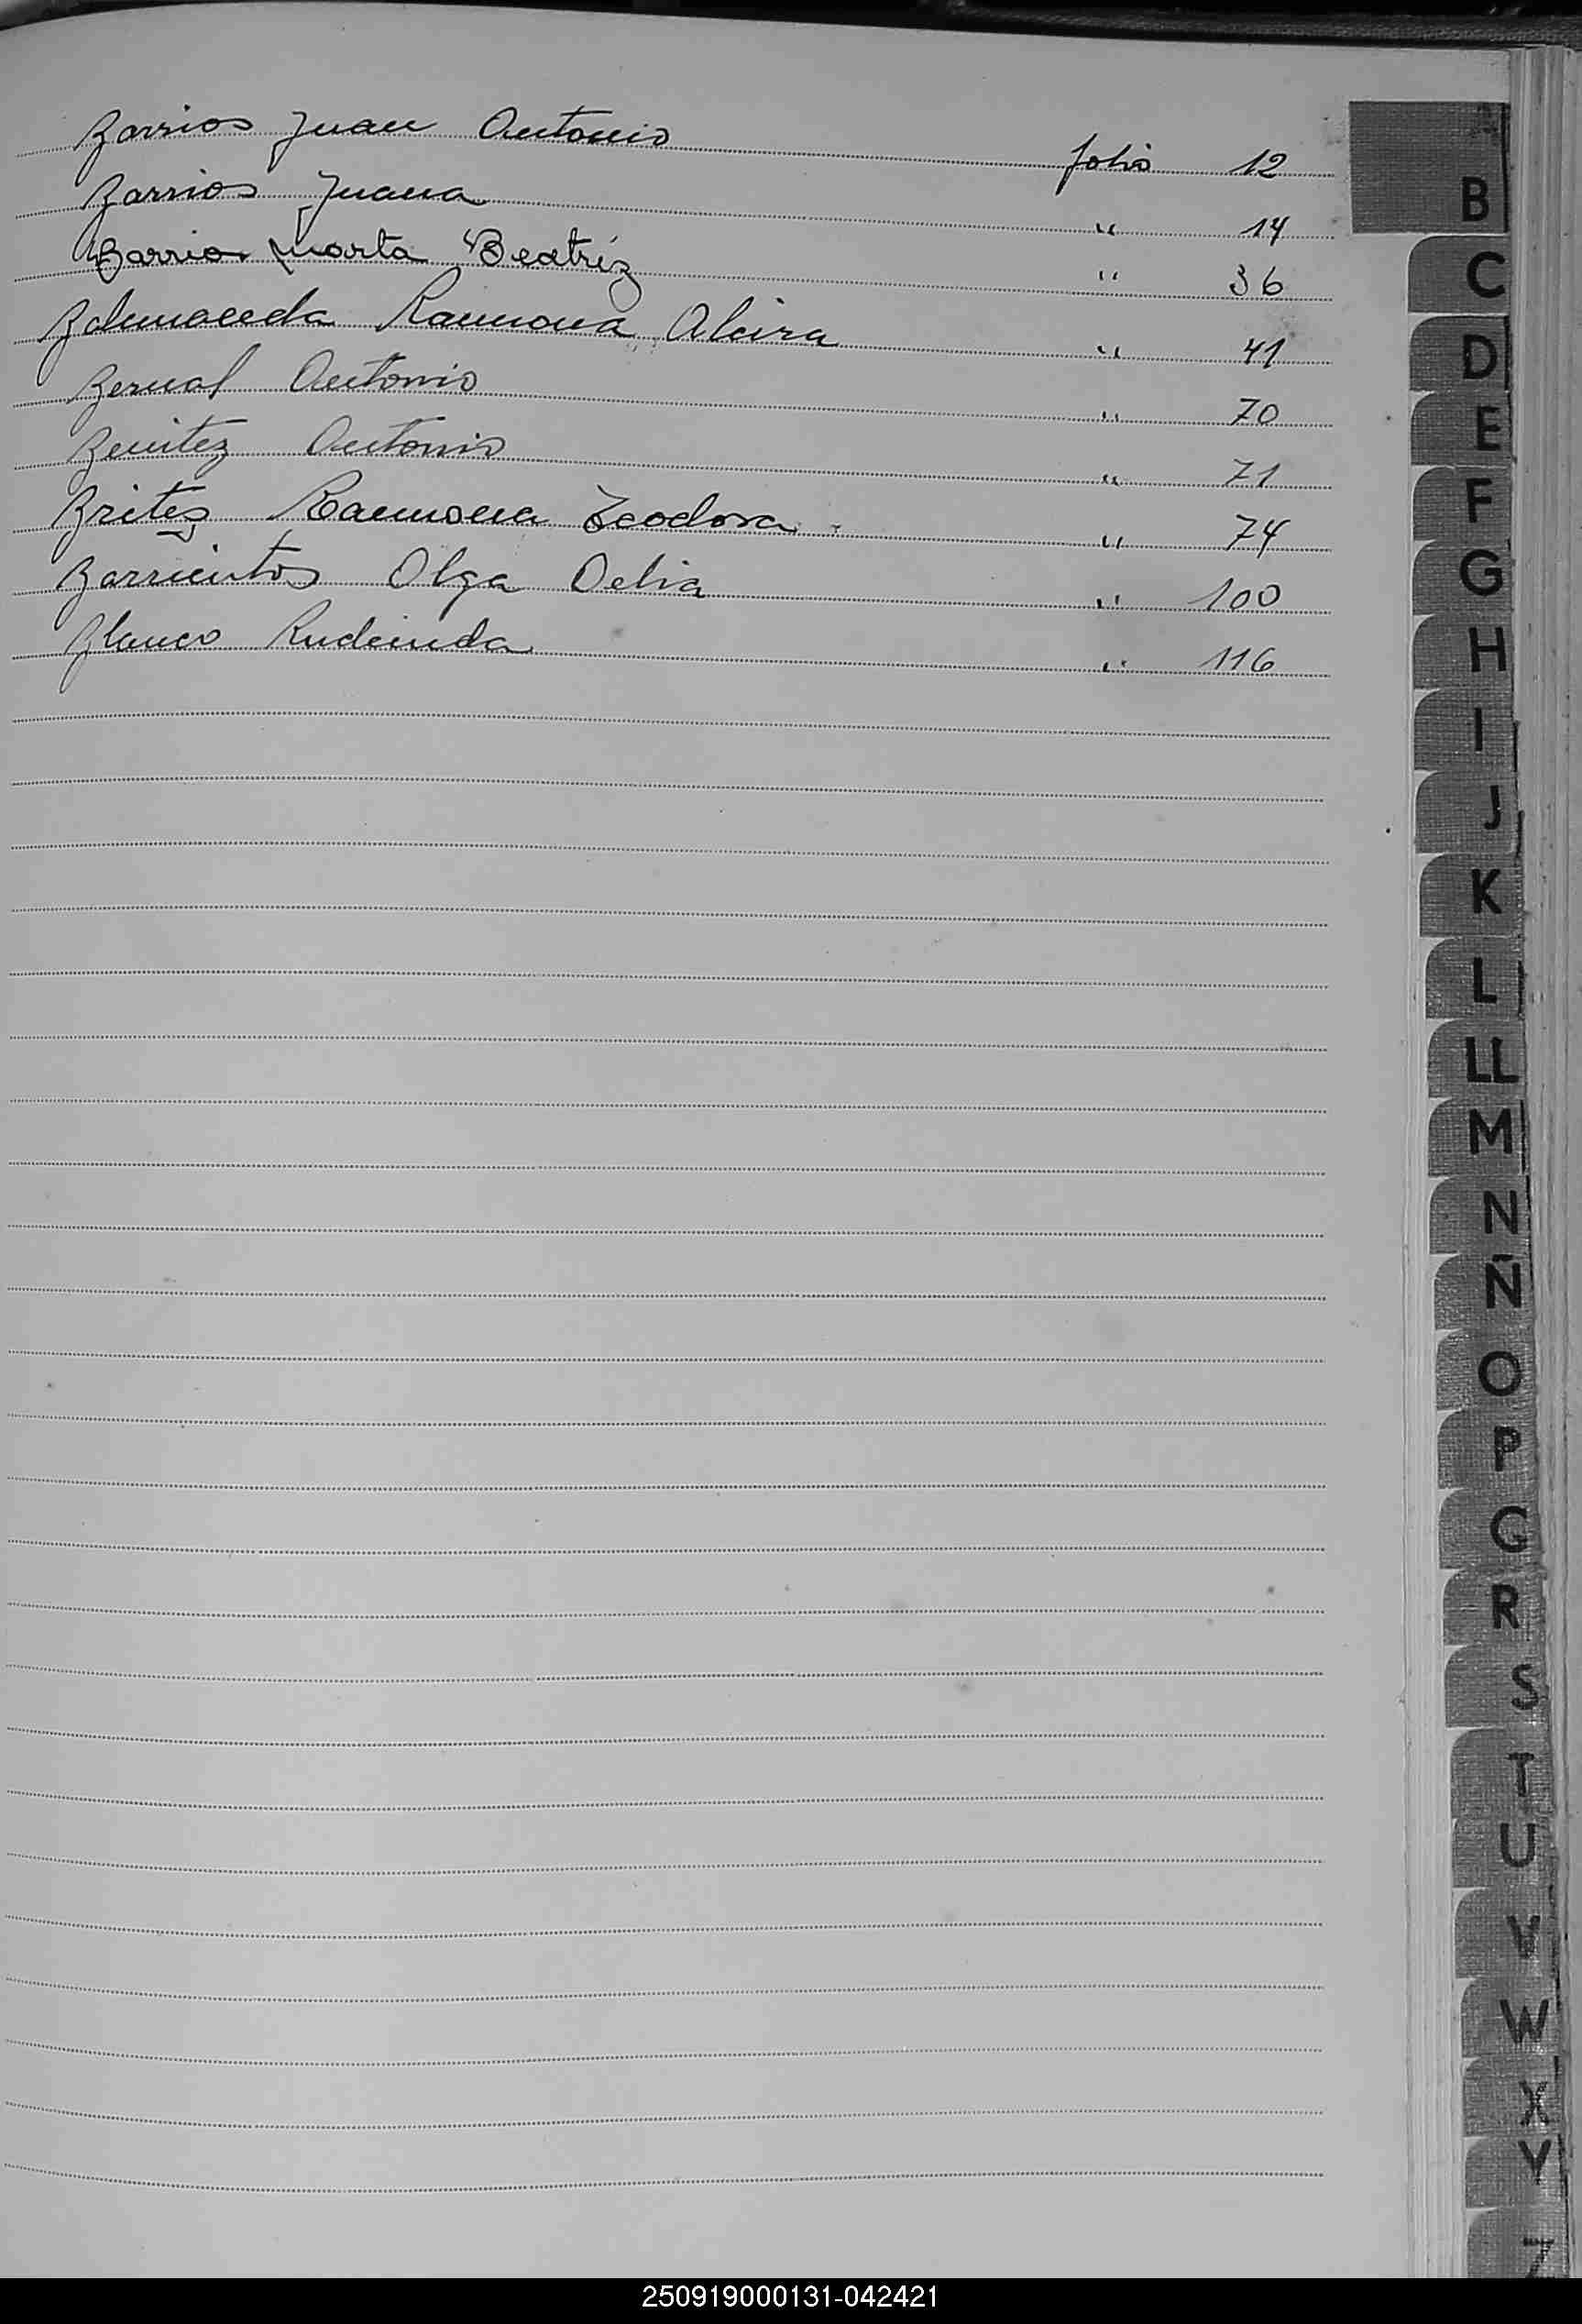 Barrios Juan Antonio folio 12
Barrios Juana " 14
Barrio Marta Beatriz " 36
Balmaceda Ramona Alcira " 41
Bernal Antonio " 70
Benitez Antonio " 71
Britez Ramona Teodora " 74
Barrientos Olga Delia " 100
Blanco Rudecinda " 116
A
B
C
D
E
F
G
H
I
J
K
L
LL
M
N
Ñ
O
P
Q
R
S
T
U
V
W
X
Y
Z
250919000131-042421